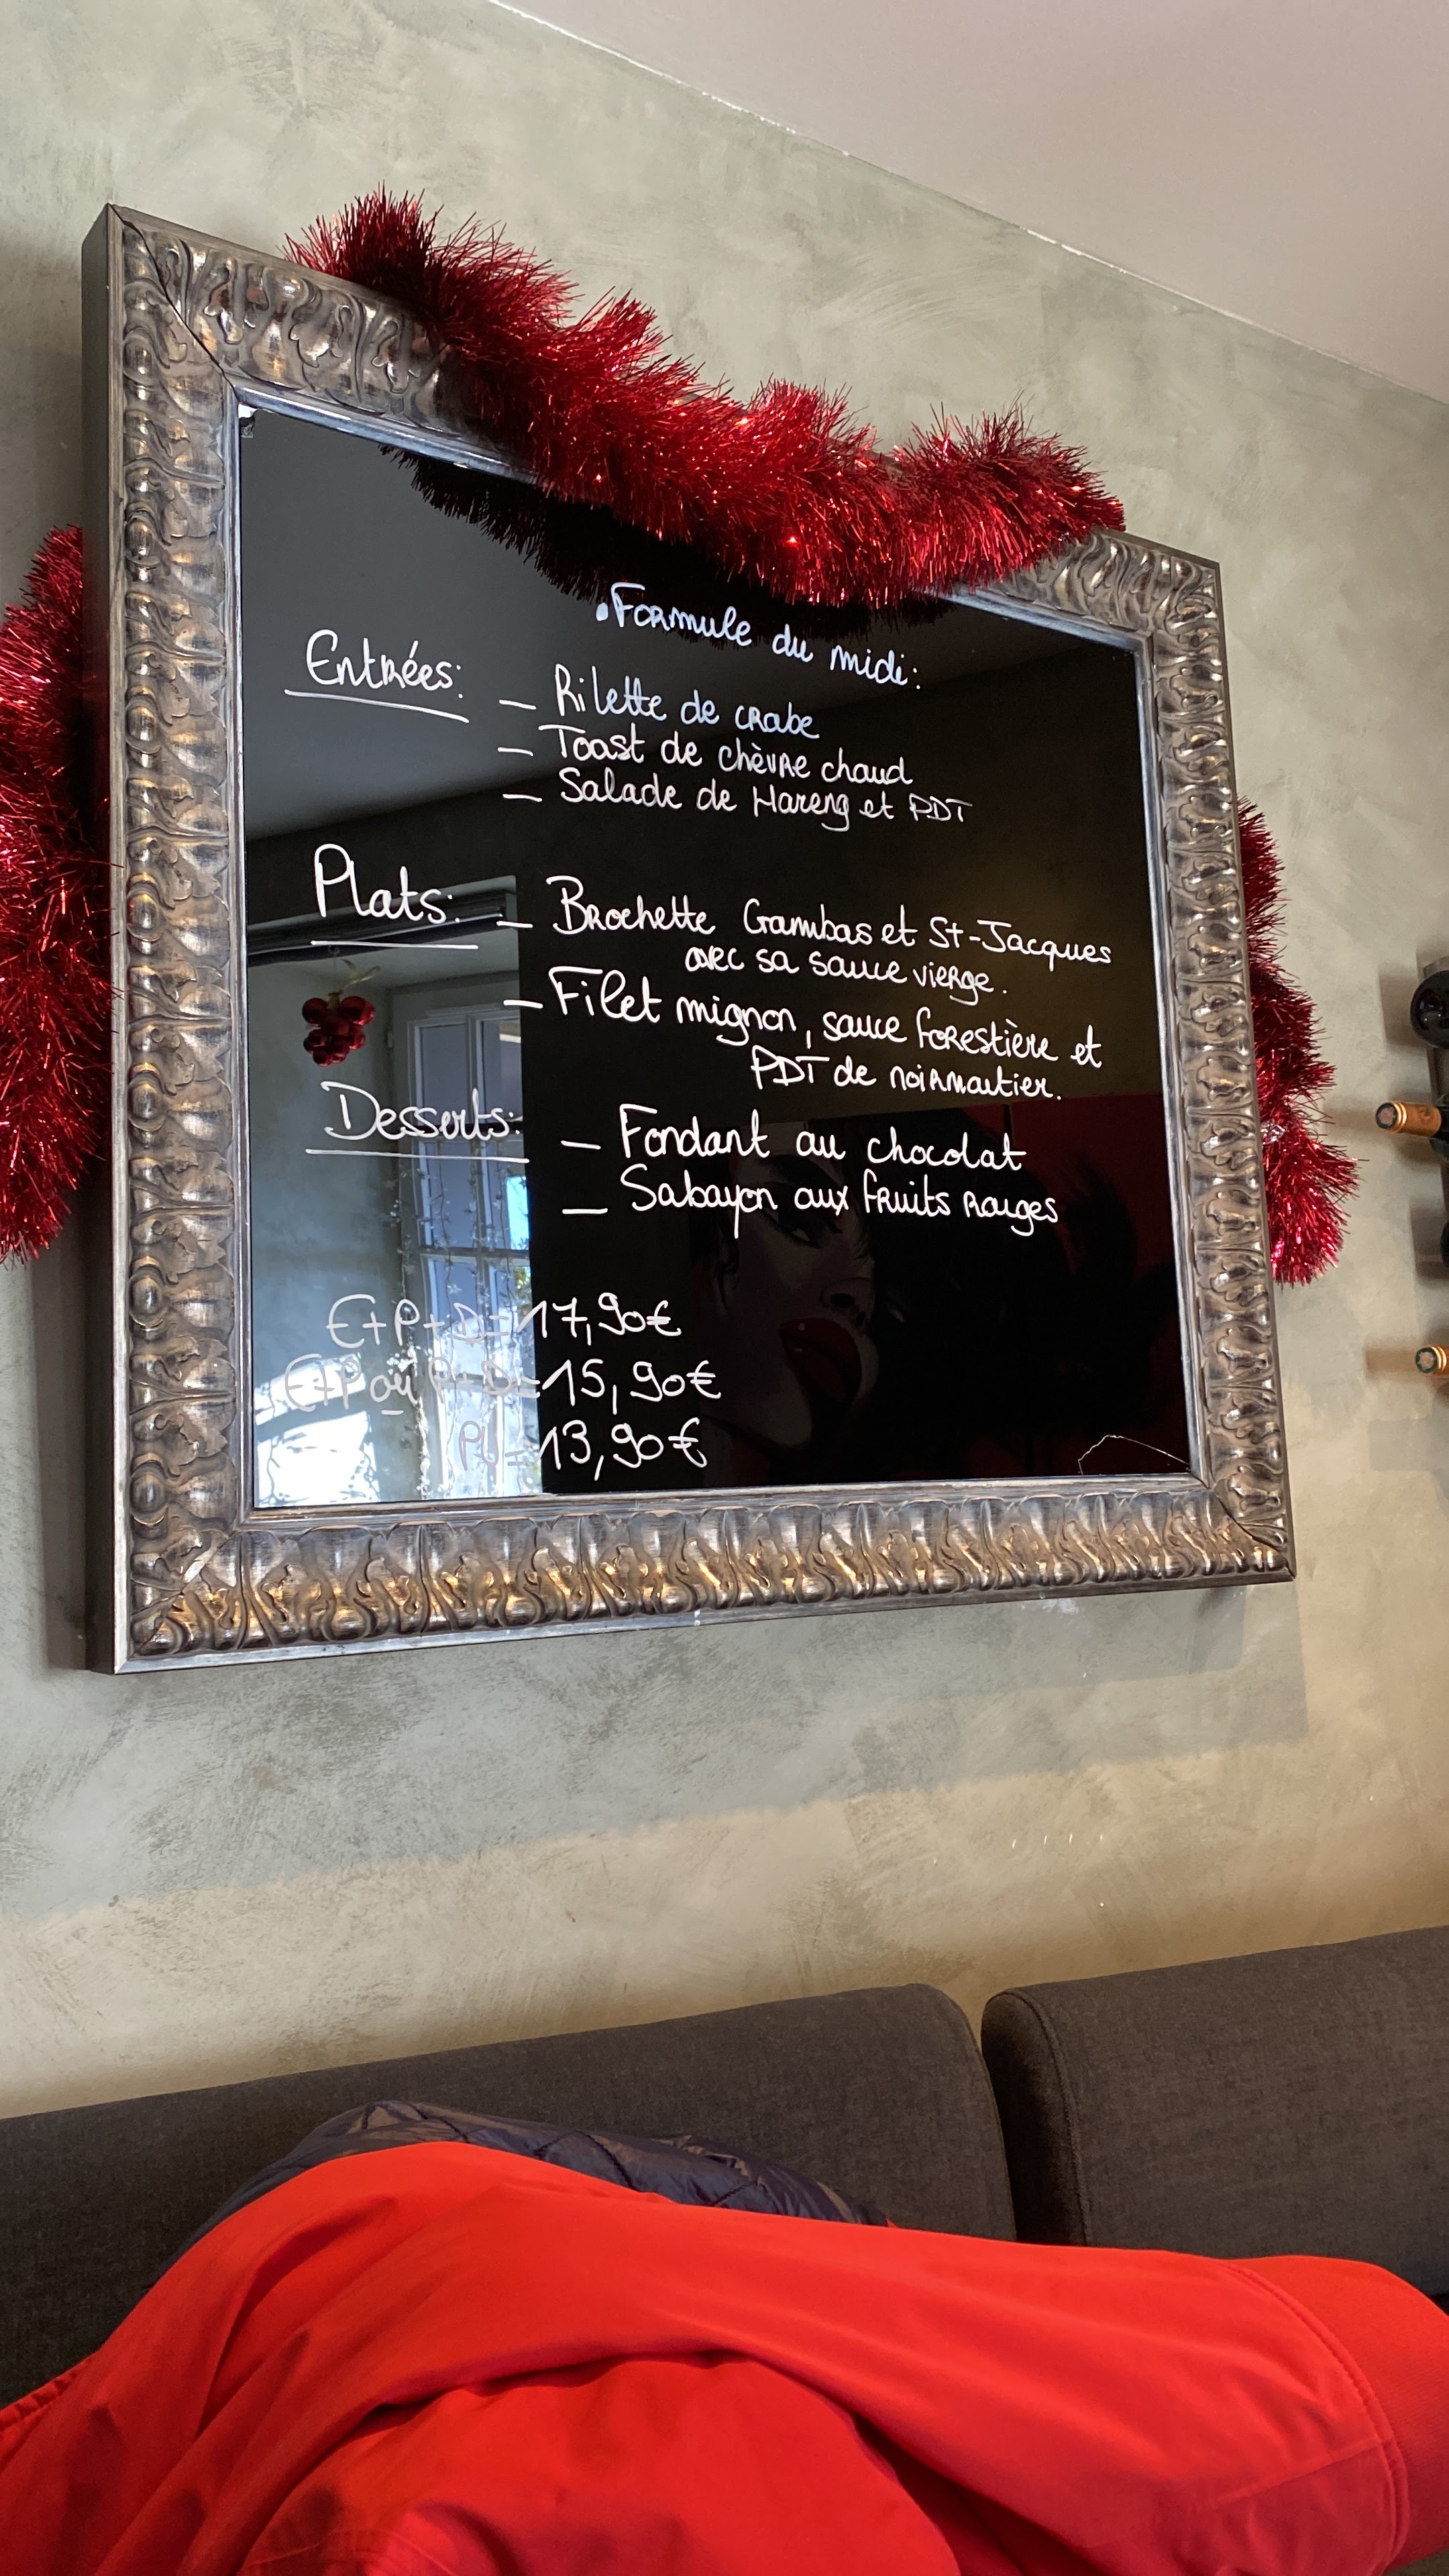 • Formule du midi:
Entrées:
— Rilette de crabe
— Toast de chèvre chaud
— Salade de Hareng et PDT
Plats:
— Brochette Gambas et St-Jacques
avec sa sauce vierge.
— Filet mignon, sauce forestière et
PDT de noirmoutier.
Desserts:
— Fondant au chocolat
— Sabayon aux fruits rouges
E+P+D=17,90€
E+P ou P+D=15,90€
=13,90€